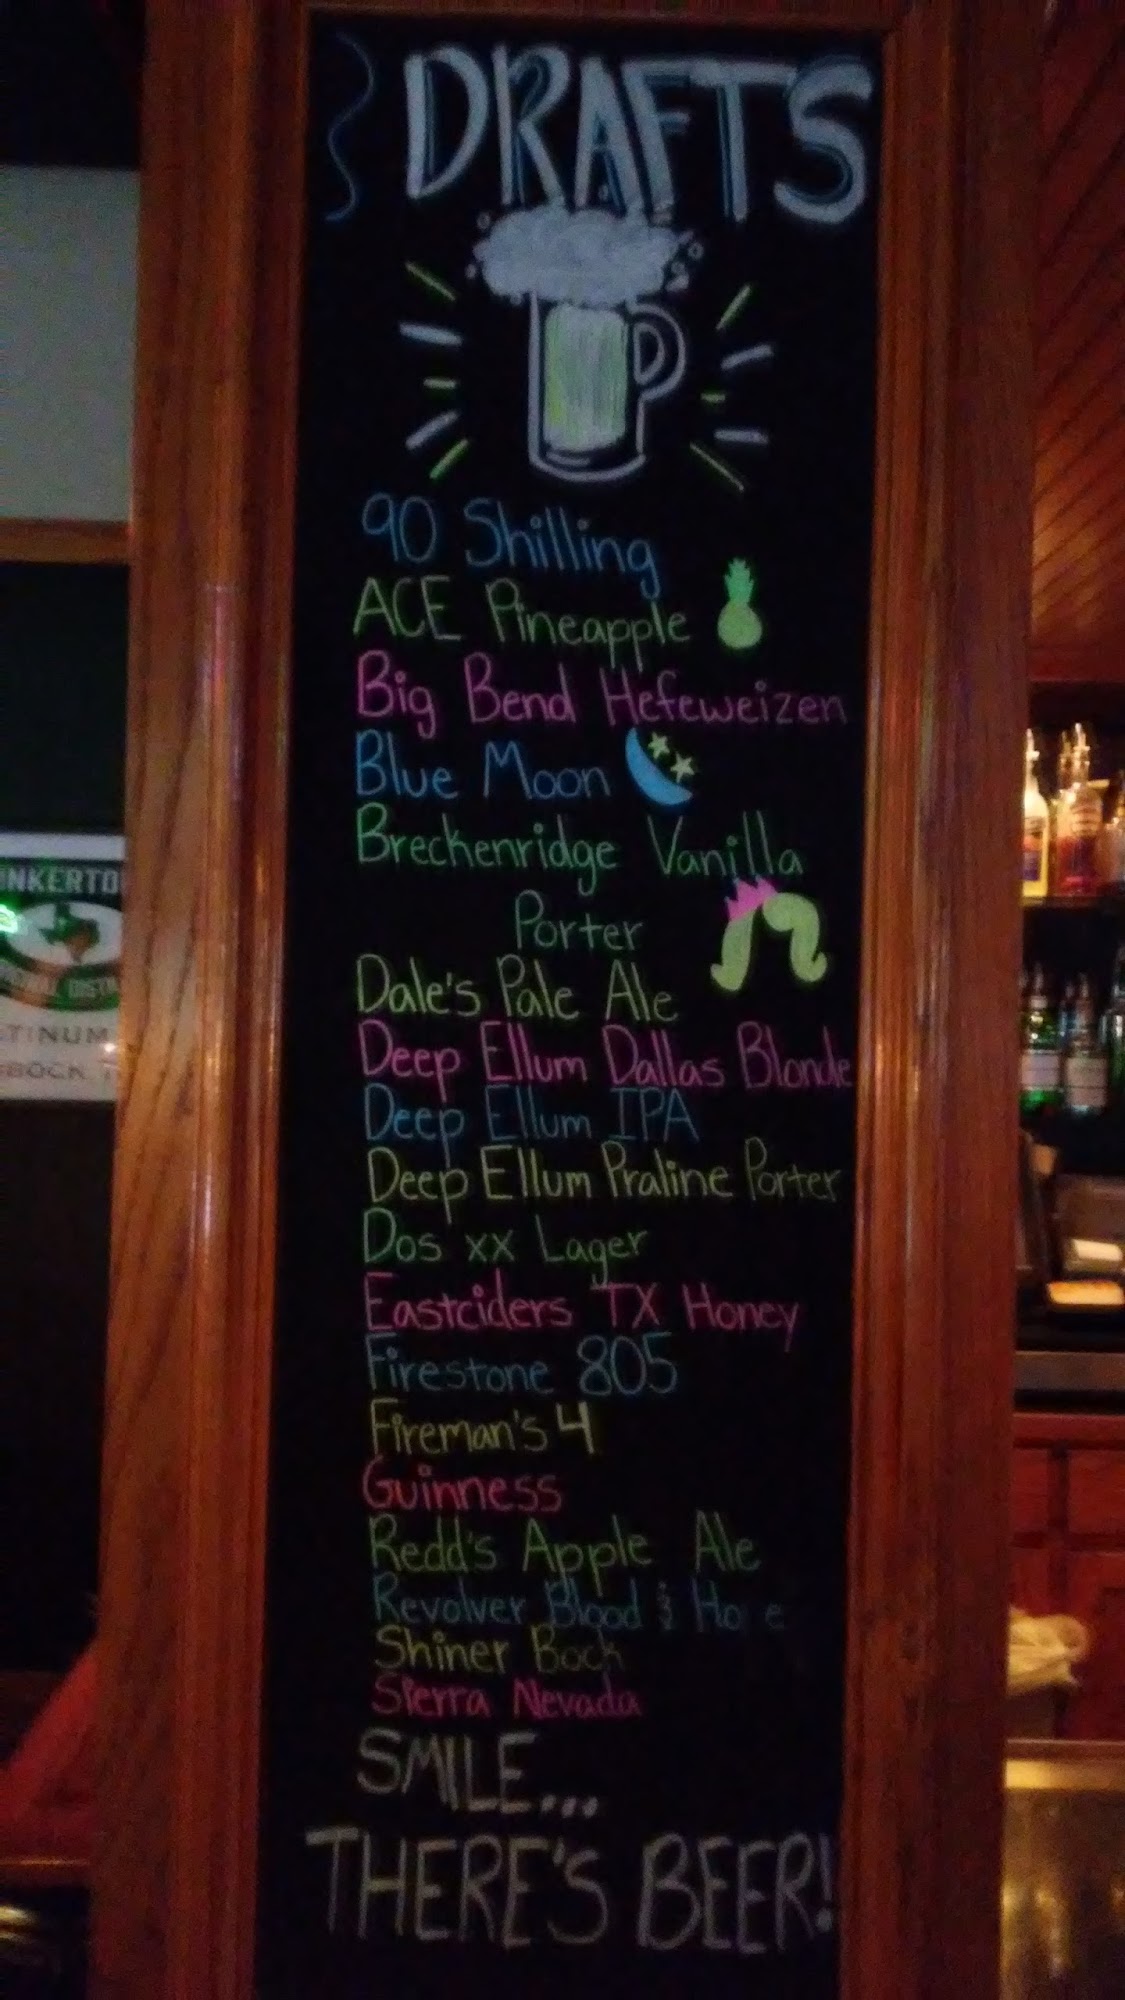 DRAFTS
90 Shilling
ACE Pineapple
Big Bend Hefeweizen
Blue Moon
Breckenridge Vanilla
Porter
Dale's Pale Ale
Deep Ellum Dallas Blonde
Deep Ellum IPA
Deep Ellum Praline Porter
Dos xx Lager
Eastciders TX Honey
Firestone 805
Fireman's 4
Guinness
Redd's Apple Ale
Revolver Blood &
Shiner Bock
Sierra Nevada
SMILE...
THERE'S BEER!
NKERTO
TINUM
BOCK